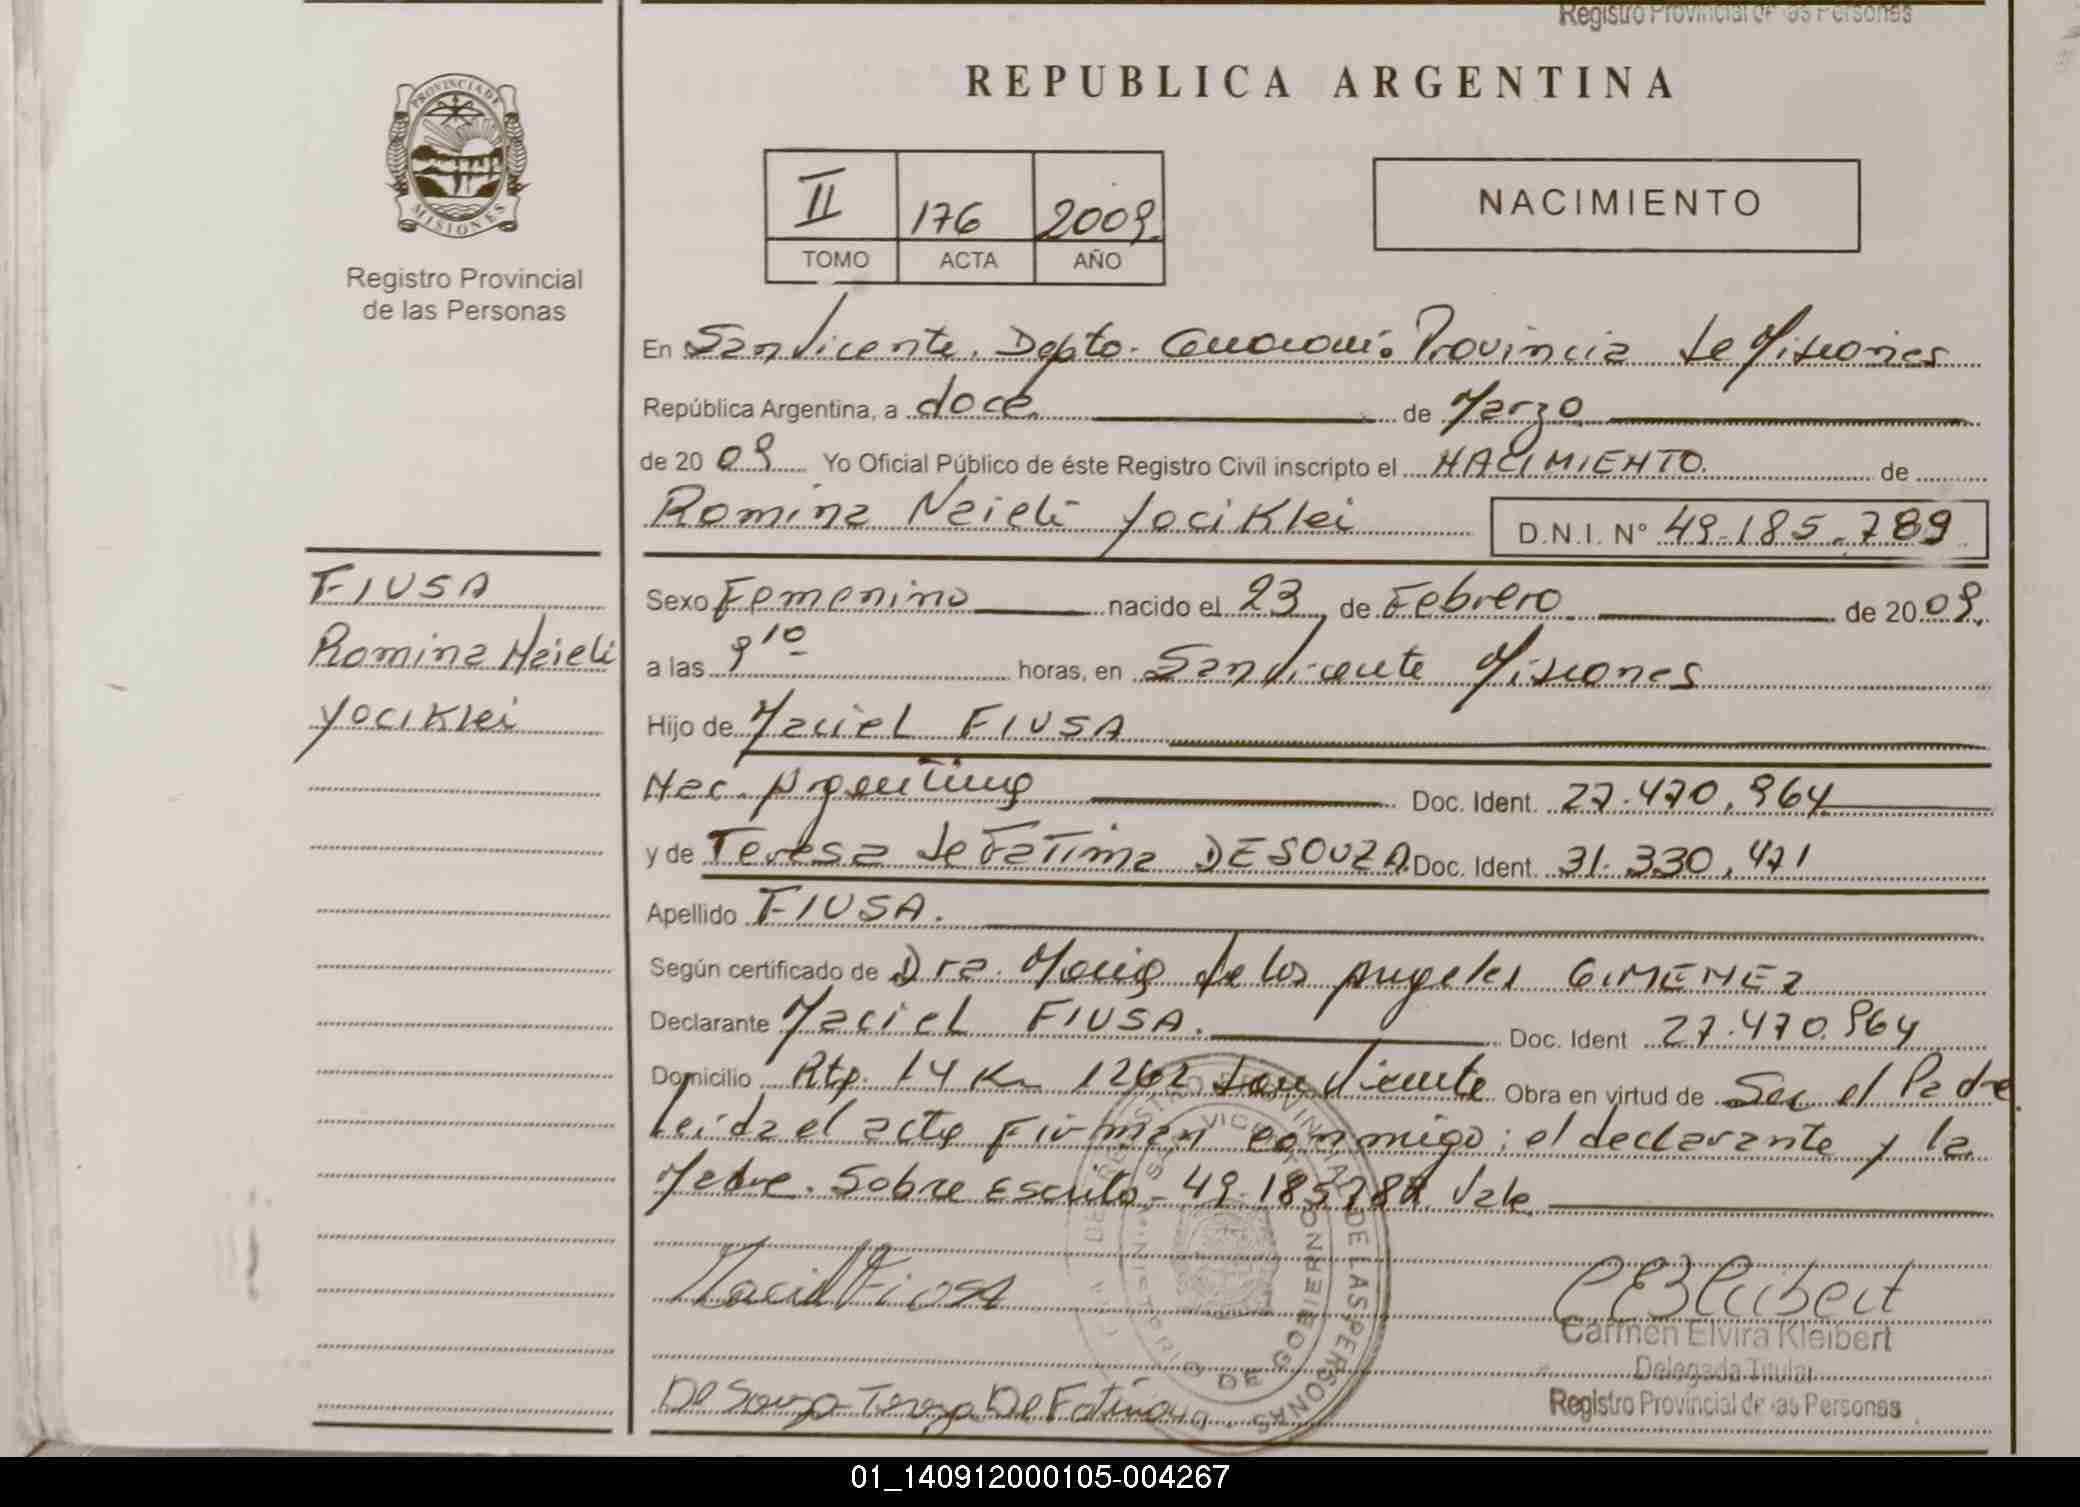 Registro Provincial de las Personas
PROVINCIA DE
MISIONES
Registro Provincial
de las Personas
REPUBLICA ARGENTINA
II 176 2009
TOMO ACTA AÑO
NACIMIENTO
En San Vicente, Depto. Guaraní. Provincia de Misiones
República Argentina, a doce de Marzo
de 2009 Yo Oficial Público de éste Registro Civil inscripto el NACIMIENTO de
Romina Naieli Yociklei D.N.I. Nº 49.185.789
FIUSA
Romina Naieli
Yociklei
Sexo Femenino nacido el 23 de Febrero de 2009.
a las 9 10 horas, en San Vicente Misiones
Hijo de Maciel FIUSA
Nac. Argentina Doc. Ident. 27.470.964
y de Teresa de Fatima DE SOUZA Doc. Ident. 31.330.471
Apellido FIUSA.
Según certificado de Dra. Maria de los Angeles GIMENEZ
Declarante Maciel FIUSA. Doc. Ident 27.470.964
Domicilio Rta. 14 Km 1262 San Vicente Obra en virtud de Ser el Padre
Leida el acta Firman conmigo: el declarante y la
Madre. Sobre escrito - 49.185789. Vale
Maciel Fiosa
CEKleibert
Carmen Elvira Kleibert
Delegada Titular
Registro Provincial de las Personas
De Souza Tereza De Fatima
REGISTRO PROVINCIAL DE LAS PERSONAS
MINISTERIO DE GOBIERNO
01_140912000105-004267